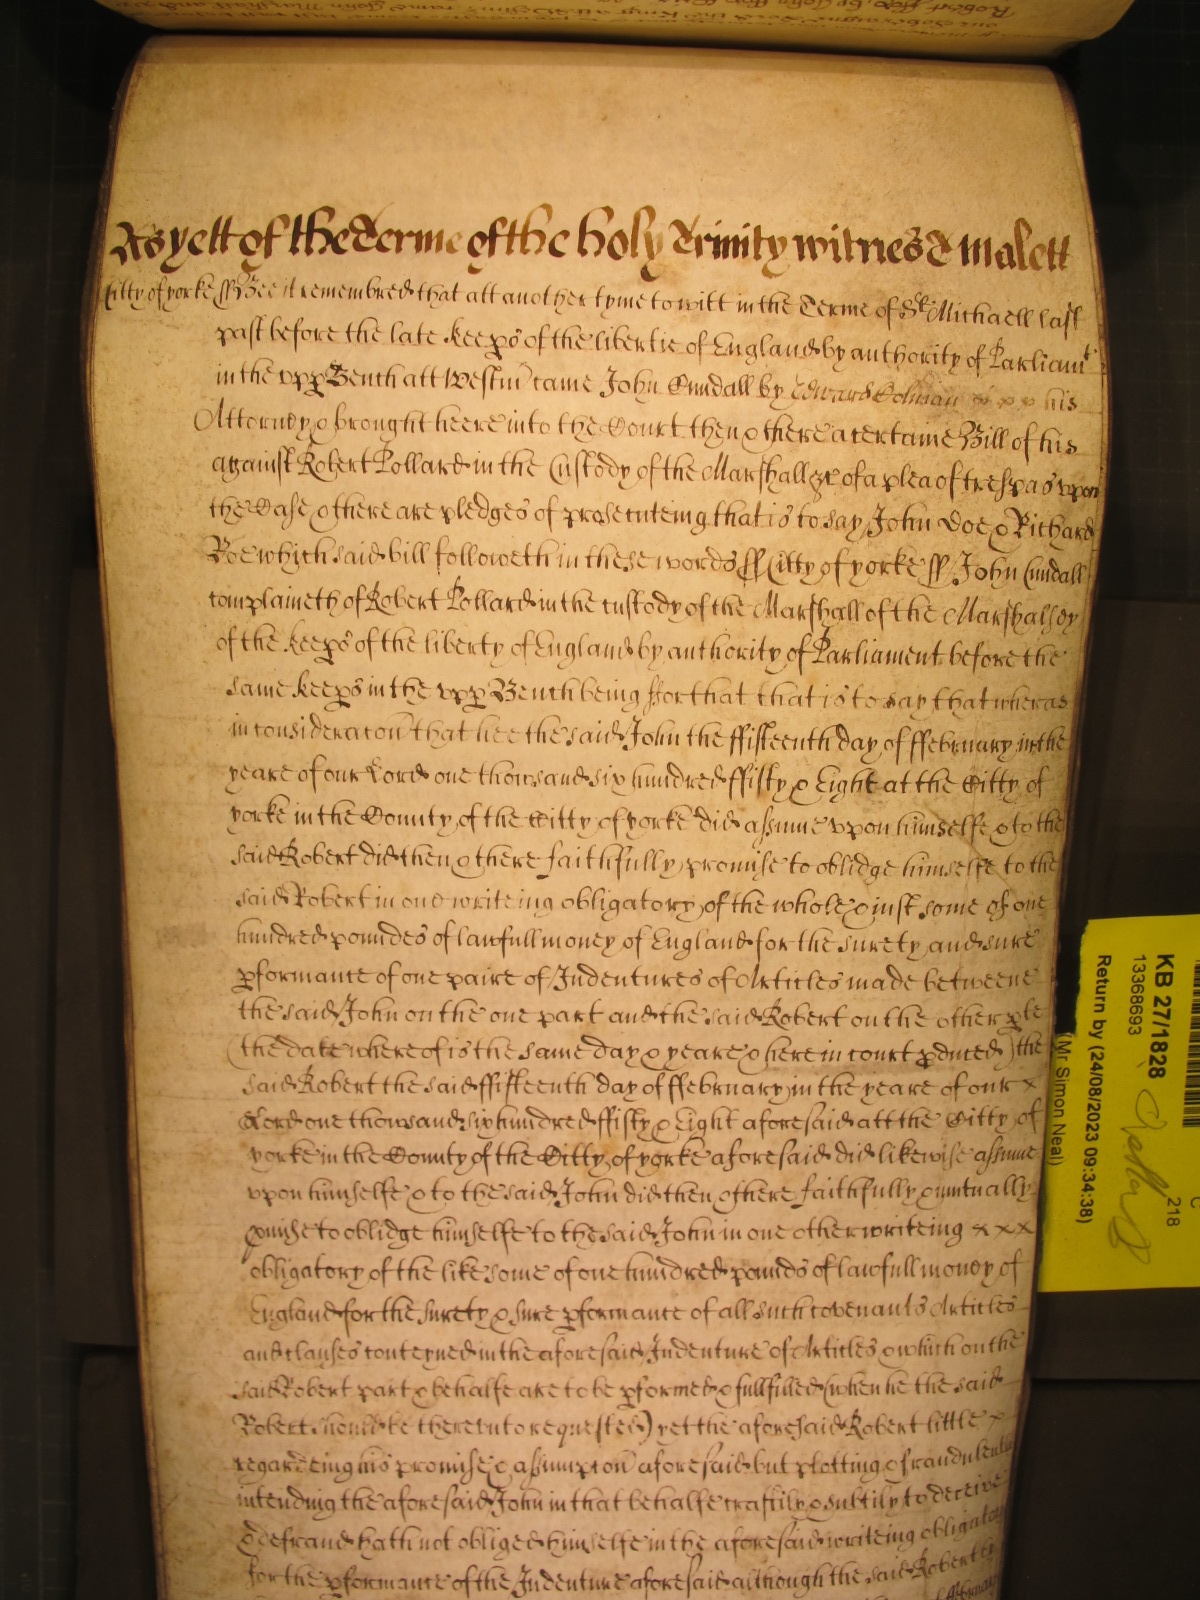 As yett of the Terme of the holy Trinity witnes T Malett
Citty of yorke ss Bee it remembred that att another tyme to witt in the Terme of St Michaell last
past before the late keeps of the libertie of England by authority of Parliamt
in the upp Bench att Westm came John Cundall by Edward Colman x x x his
Attorney & brought heere into the Court then & there a certaine Bill of his
against Robert Pollard in the Custody of the Marshall &c of a plea of trespas upon
the Case & there are pledges of prosecuteing that is to say John Doe & Richard
Roe which said bill followeth in these words ss Citty of yorke ss John Cundall
complaineth of Robert Pollard in the custody of the Marshall of the Marshalsey
of the keeps of the liberty of England by authority of Parliament before the
same keeps in the upp Bench being ffor that that is to say that wheras
in consideracon that hee the said John the ffifteenth day of ffebruary in the
yeare of our Lord one thousand six hundred ffifty & Eight at the Citty of
yorke in the County of the Citty of yorke did assume upon himselfe & to the
said Robert did then & there faithfully promise to oblidge himselfe to the
said Robert in one writeing obligatory of the whole & iust some of one
hundred poundes of lawfull money of England for the surety and sure
pformance of one paire of Indentures of Articles made betweene
the said John on the one part and the said Robert on the other pte
(the date whereof is the same day & yeare & here in court pduced) the
said Robert the said ffifteenth day of ffebruary in the yeare of our x
Lord one thousand six hundred ffifty & Eight aforesaid att the Citty of
yorke in the County of the Citty of yorke aforesaid did likewise assume
upon himselfe & to the said John did then & there faithfully & mutually
pmise to oblidge himselfe to the said John in one other writeing x x x
obligatory of the like some of one hundred pounds of lawfull money of
England for the surety & sure pformance of all such covenants Articles
and clauses conteyned in the aforesaid Indenture of Articles & which on the
said Robert part & behalfe are to be pformed & fullfilled (when he the said
Robert should be thereunto requested) yet the aforesaid Robert little x
regardeing his promise & assumpcon aforesaid but plotting & fraudulently
intending the aforesaid John in that behalfe craftily & subtily to deceive
& defraud hath not obliged himselfe in the aforesaid writeing obligatory
for the pformance of the Indenture aforesaid although the said Robert
KB 27/1828
13368693
218
Return by (24/08/2023 09:34:38)
(Mr Simon Neal)